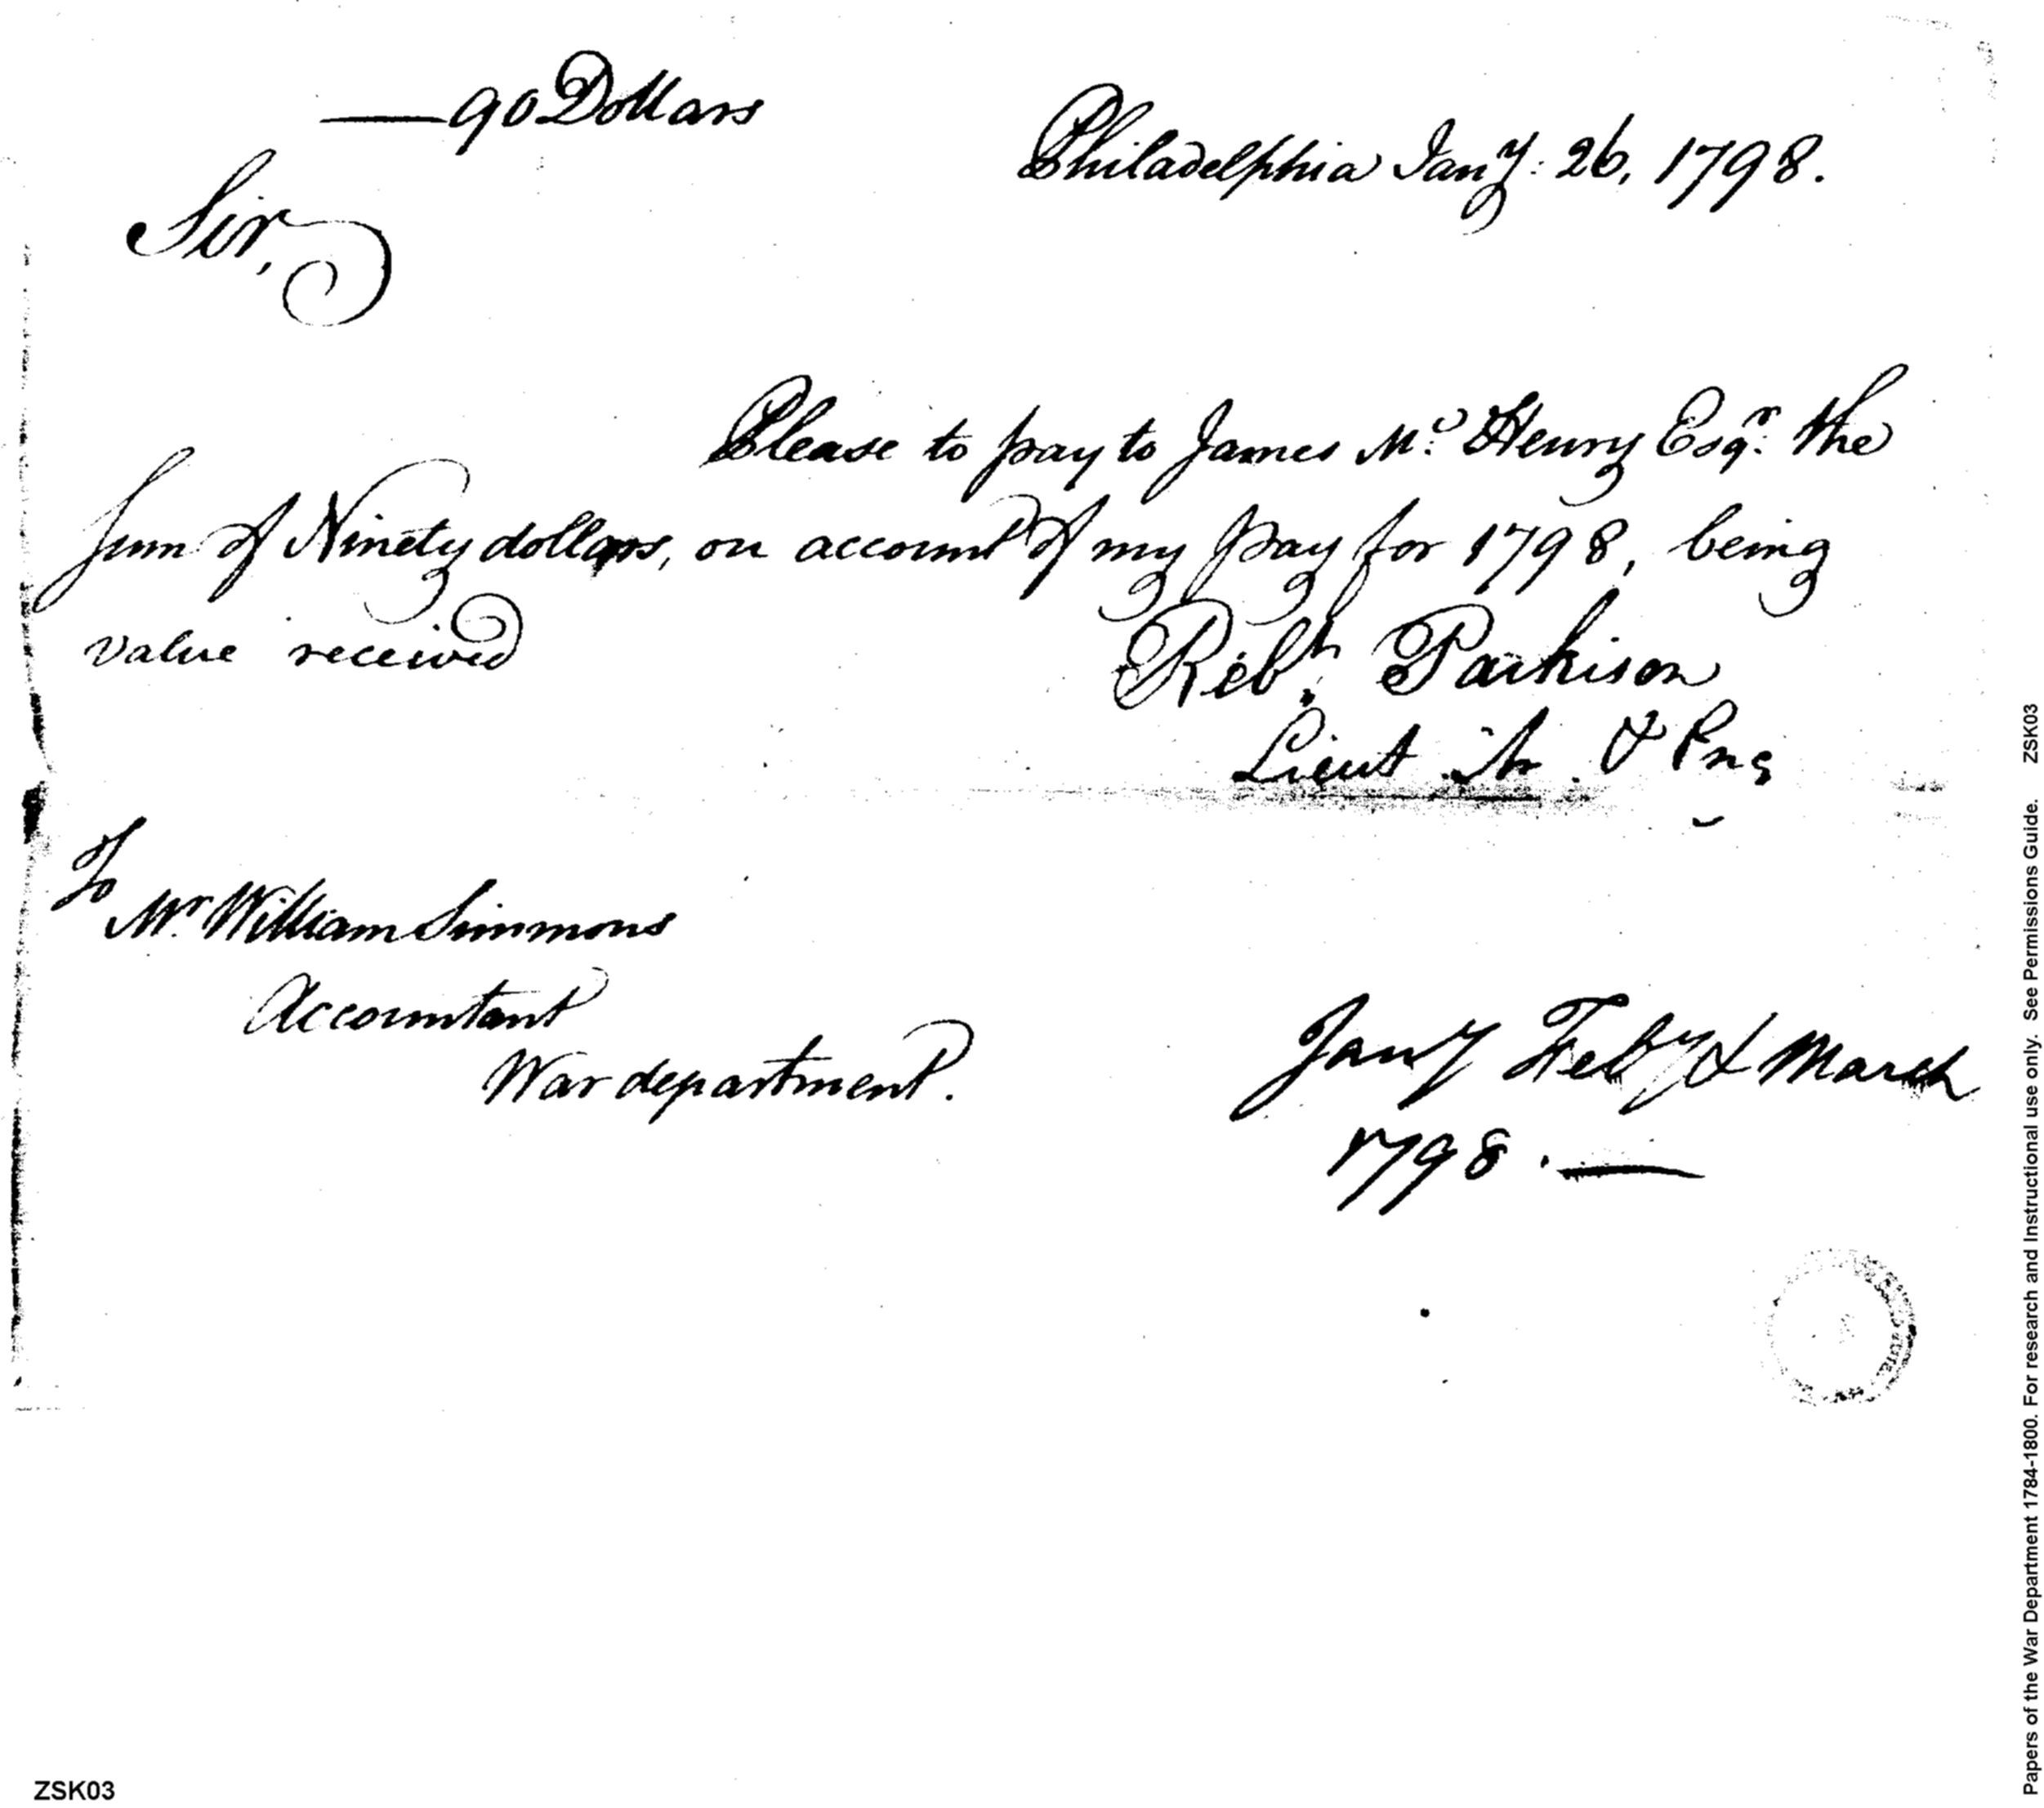 90 Dollars
Philadelphia Jany. 26, 1798.
Sir,
Please to pay to James Mc. Henry Esqr. the
Sum of Ninety dollars, on account of my pay for 1798, being
value received
Rebh. Parkison
Lieut Ar. & Eng
To
Mr. William Simmons
Accountant
War department.
Jany Feby & March
1798.
ZSK03
Papers of the War Department 1784-1800. For research and Instructional use only. See Permissions Guide. ZSK03